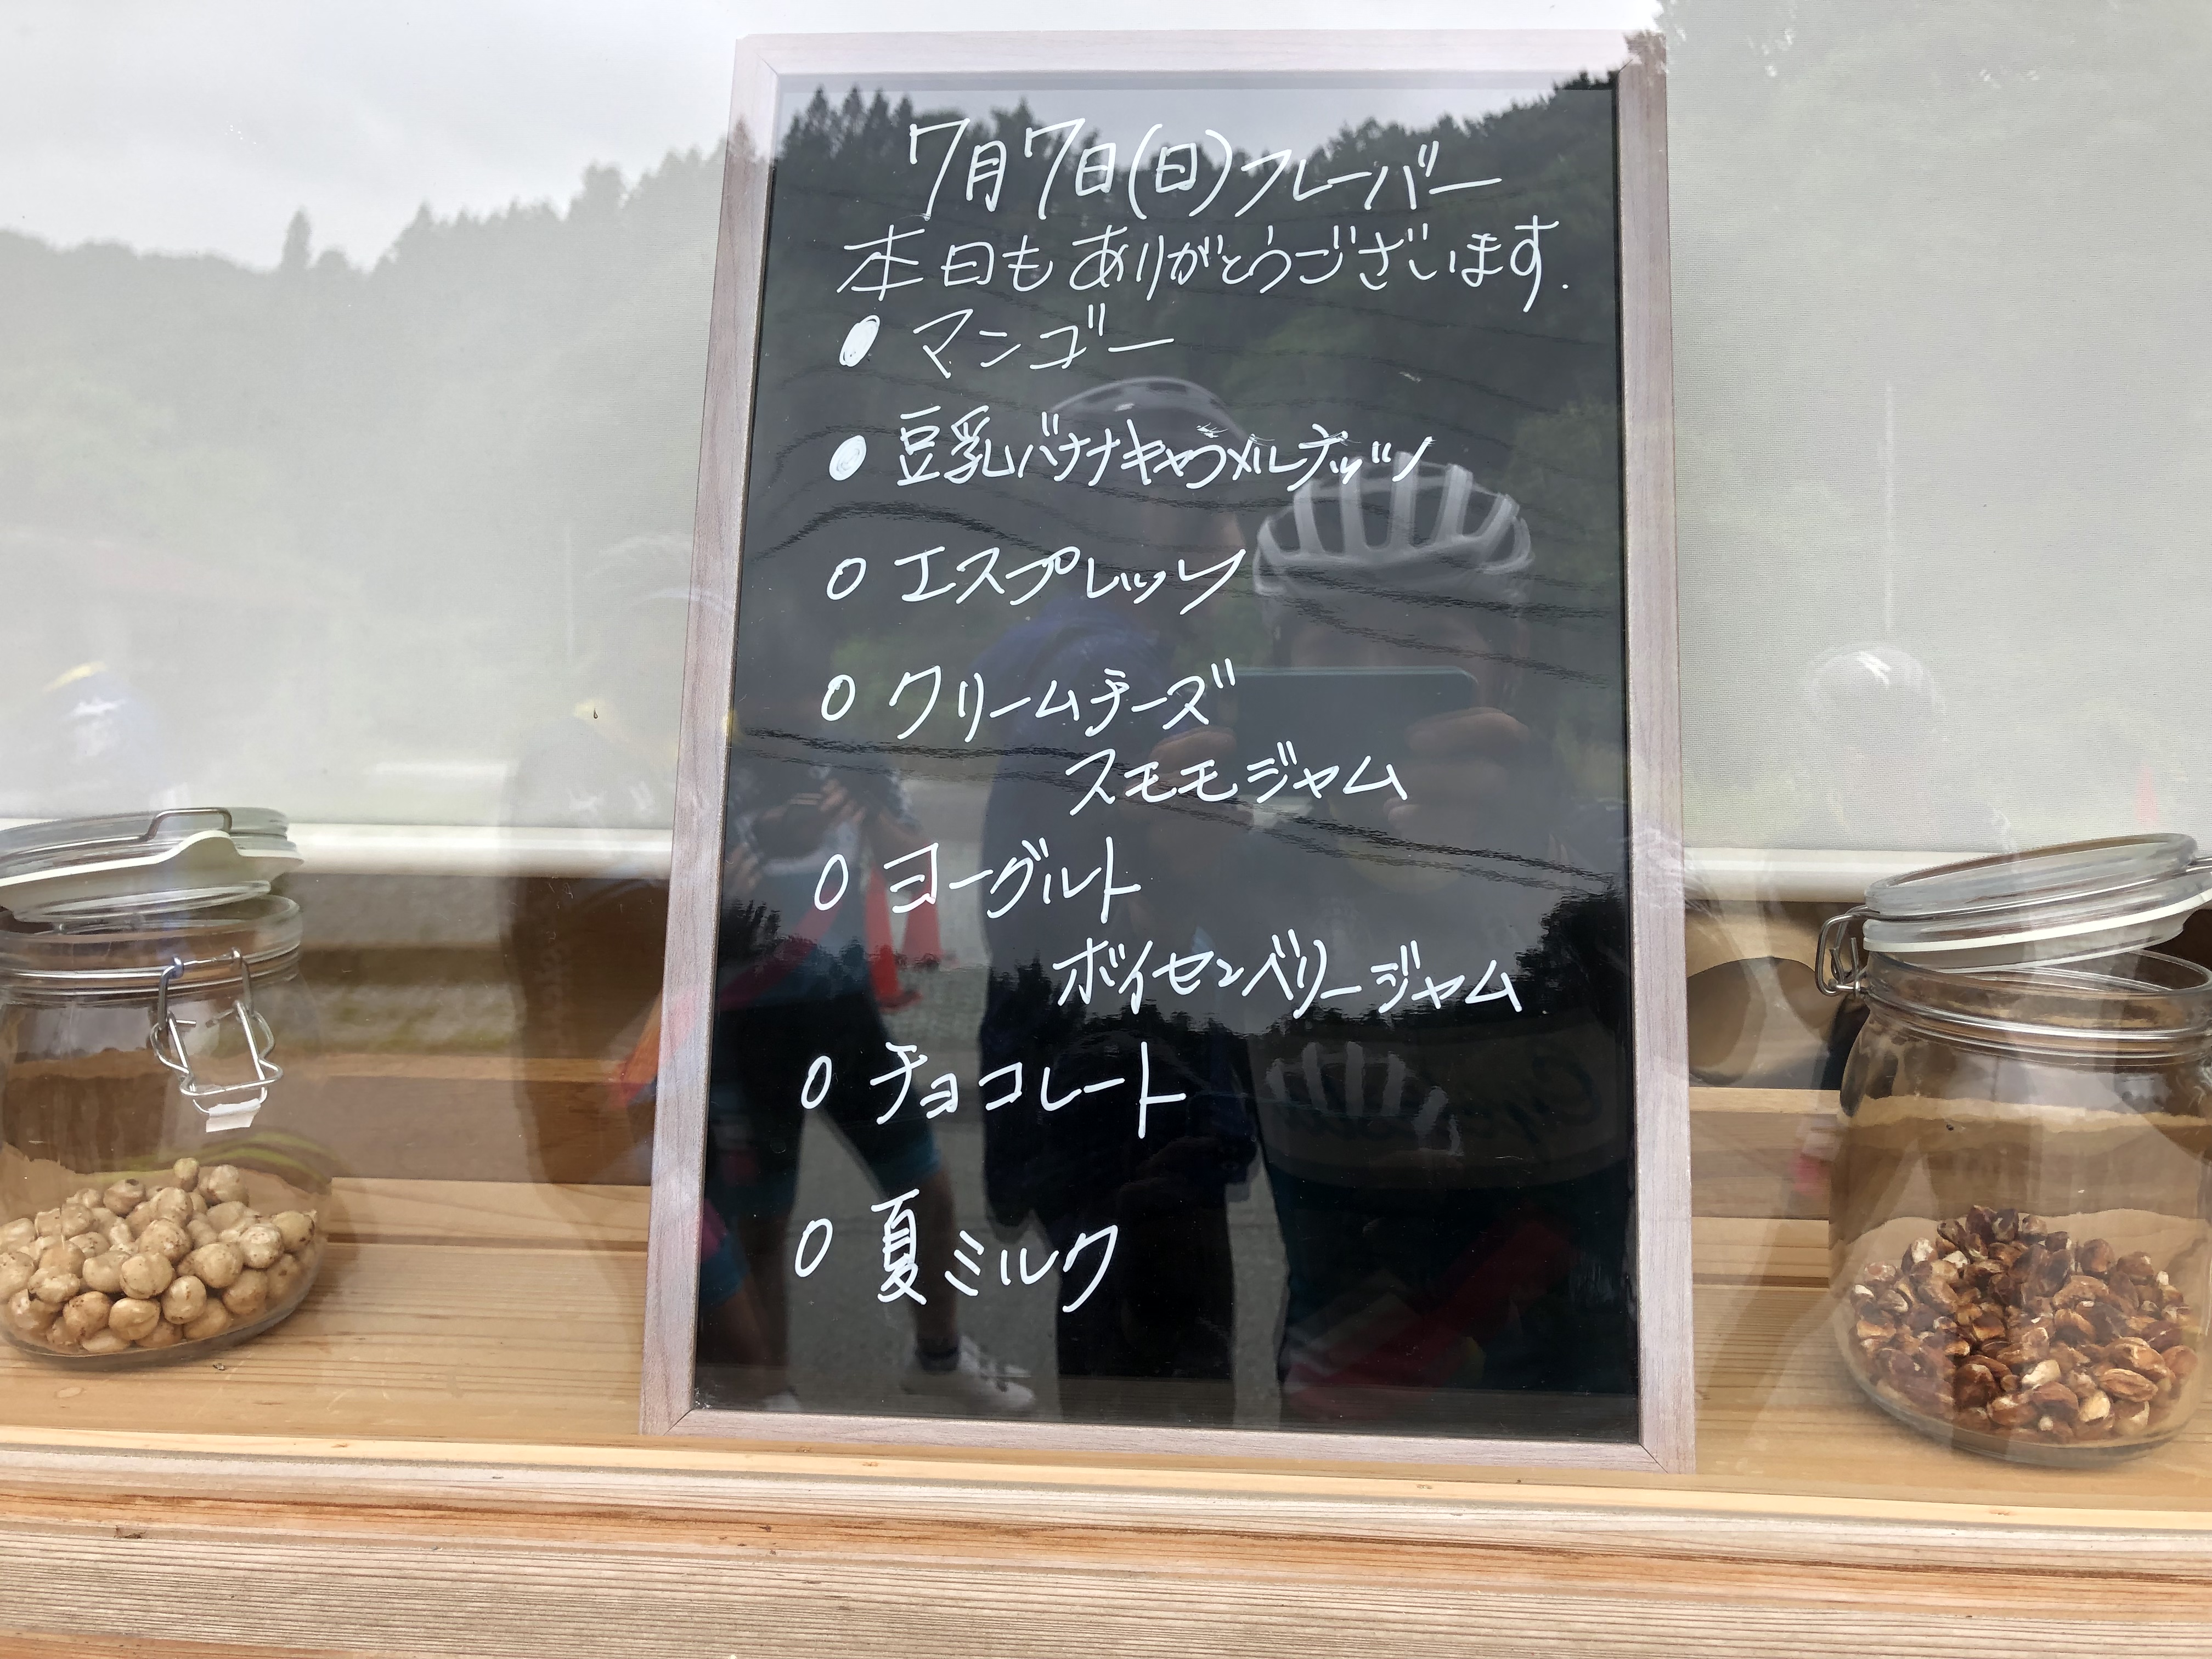 7月7日(日)フレーバー
本日もありがとうございます.
● マンゴー
● 豆乳バナナキャラメルナッツ
○ エスプレッソ
○ クリームチーズ
スモモジャム
○ ヨーグルト
ボイセンベリージャム
○ チョコレート
○ 夏ミルク